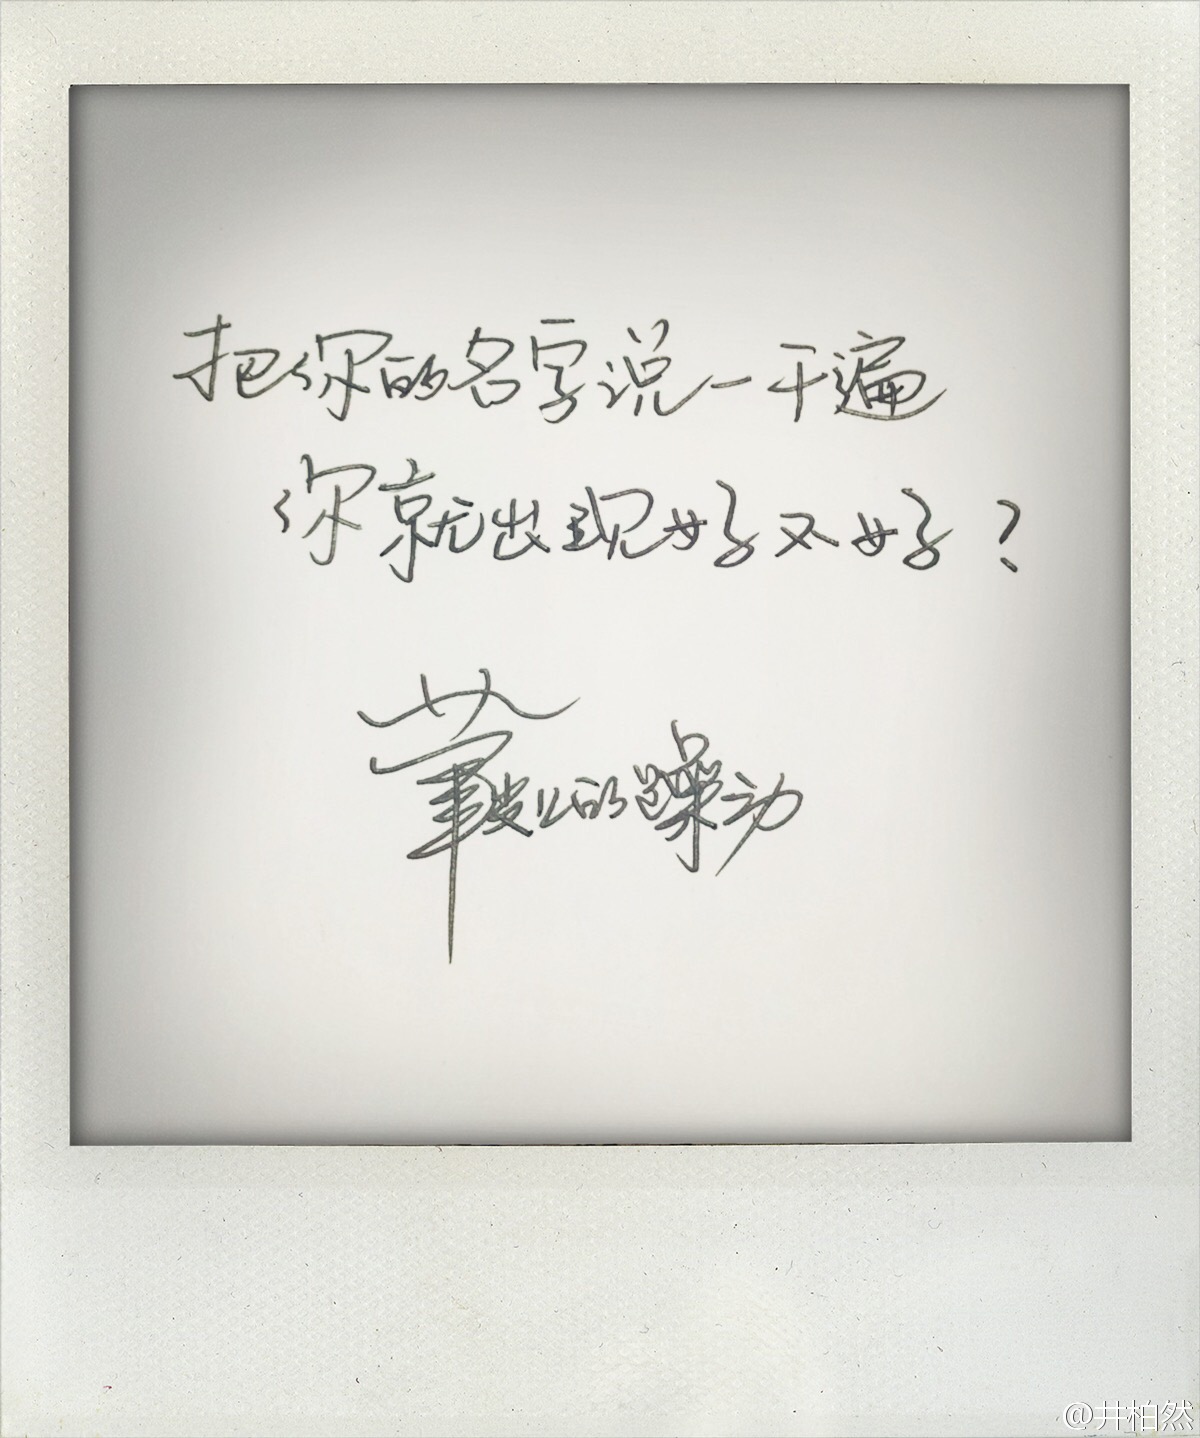 把你的名字说一千遍
你就出现好不好？
皮儿的躁动
@井柏然